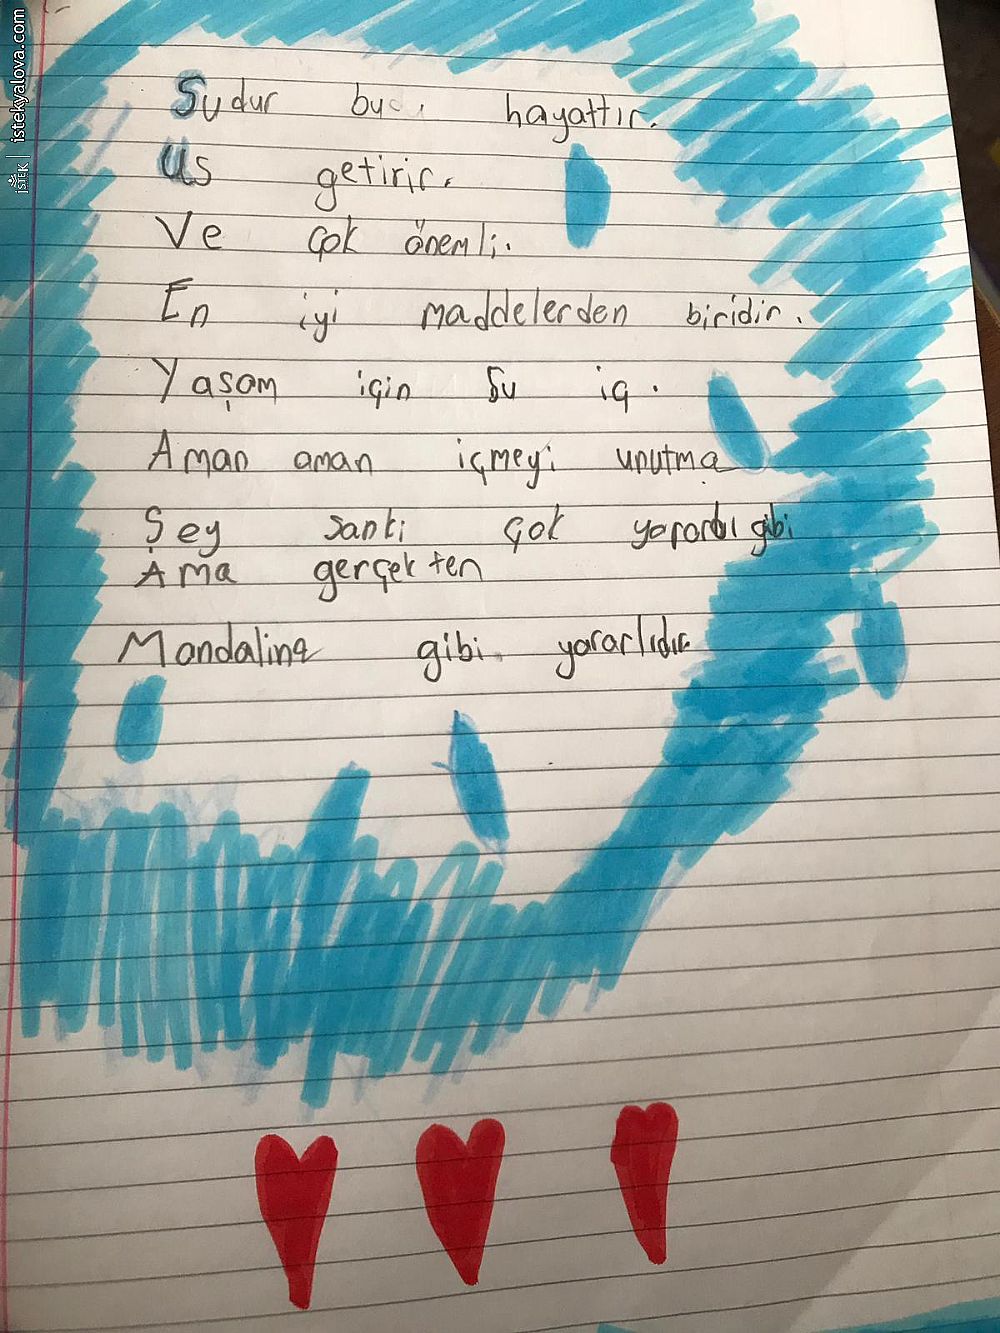 istekyalova.com
İSTEK
Sudur bu hayattır.
Us getirir.
Ve çok önemli.
En iyi maddelerden biridir.
Yaşam için su iç.
Aman aman içmeyi unutma
Şey sanki çok yararlı gibi
Ama gerçekten
Mandalina gibi yararlıdır